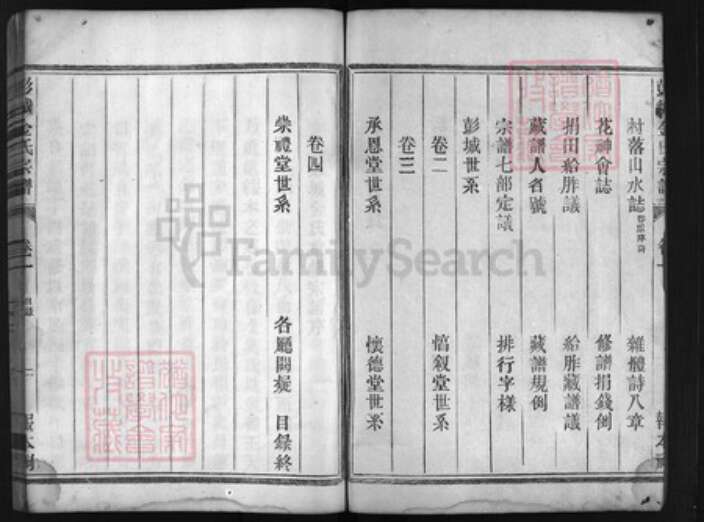 村落山水誌 雜體詩八章
花神會誌 修譜捐錢例
捐田給胙議 給胙藏譜議
藏譜人名號 藏譜規例
宗譜七部定議 排行字樣
彭城世系
卷二
惇敍堂世系
卷三
承恩堂世系 懷德堂世系
卷四
崇禮堂世系 各廳闕疑 目錄終
彭城金氏宗譜 卷一 目錄 二 報本祠
FamilySearch